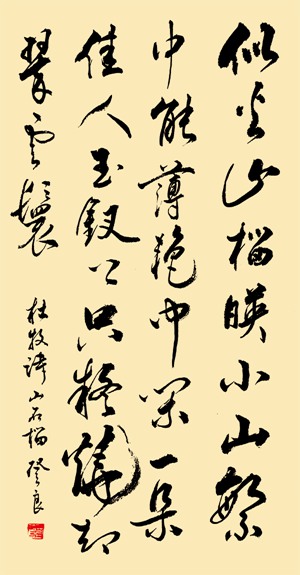 似火山榴暎小山繁
中能薄艳中闲一朵
佳人玉釵上只疑燒却
翠雲鬟
杜牧诗山石榴